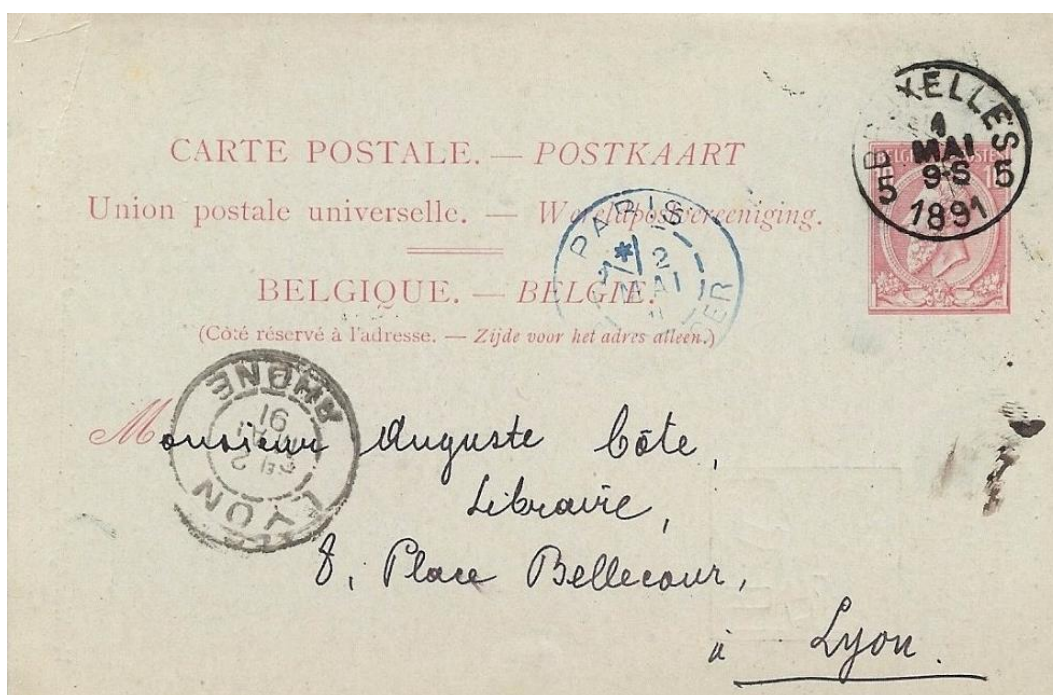 CARTE POSTALE. — POSTKAART
Union postale universelle. — Wereldpostvereeniging.
BELGIQUE. — BELGIE.
(Côté réservé à l'adresse. — Zijde voor het adres alleen.)
BRUXELLES
1
MAI
9-S
5 5
1891
PARIS
2
MAI
LYON
RHONE
2
91
Monsieur Auguste Côte,
Librairie,
8, Place Bellecour,
à Lyon.